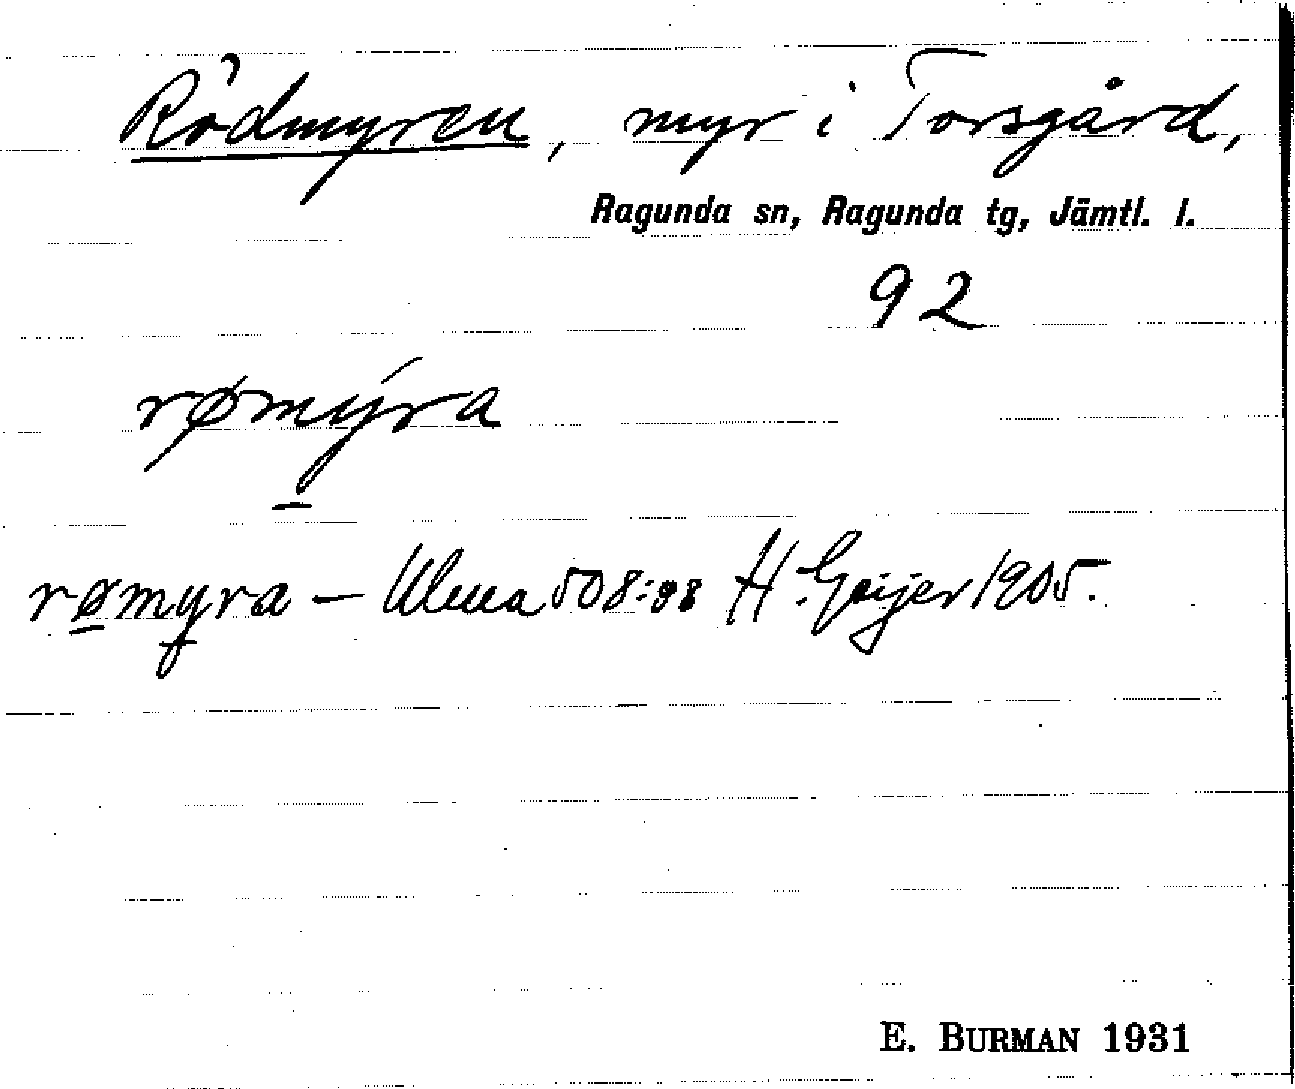 Rödmyren, myr i Torsgård,
Ragunda sn, Ragunda tg, Jämtl. l.
92
rømýra
rømyra – Ulma 508:98 H. Geijer 1905.
E. BURMAN 1931